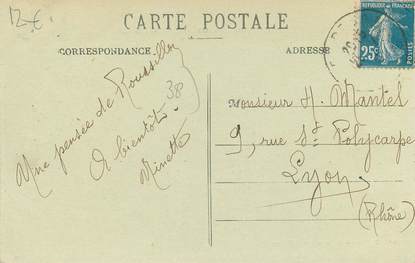 12€
CARTE POSTALE
CORRESPONDANCE
ADRESSE
REPUBLIQUE FRANÇAISE
25c
POSTES
Une pensée de Roussillon
38
A bientôt.
Minette
Monsieur H. Mantel
9, rue St Polycarpe
Lyon
(Rhône)